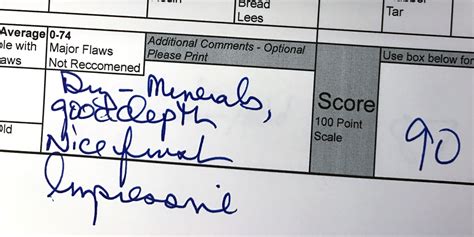 Bread
Lees
Tar
Average
0-74
ple with
Major Flaws
laws
Not Reccomened
Additional Comments - Optional
Please Print
Use box below for
Old
Dry - Minerals,
good depth
Nice finish
Impressive
Score
100 Point
Scale
90